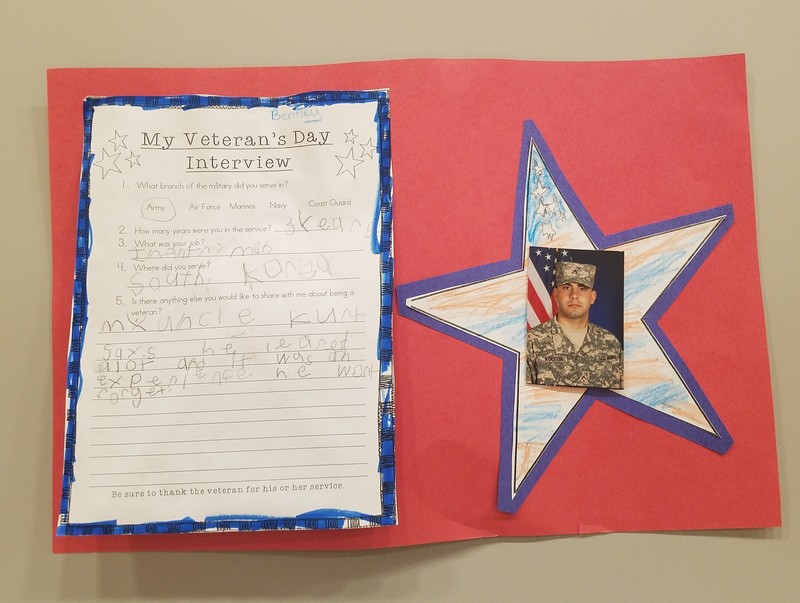 Bentley
My Veteran's Day
Interview
1. What branch of the military did you serve in?
Army Air Force Marines Navy Coast Guard
2. How many years were you in the service? 3 Years
3. What was your job?
4. Where did you serve?
South Korea
5. Is there anything else you would like to share with me about being a
veteran?
my uncle Kurt
Says he learned
alot and it was an
experience he wont
forget.
Be sure to thank the veteran for his or her service.